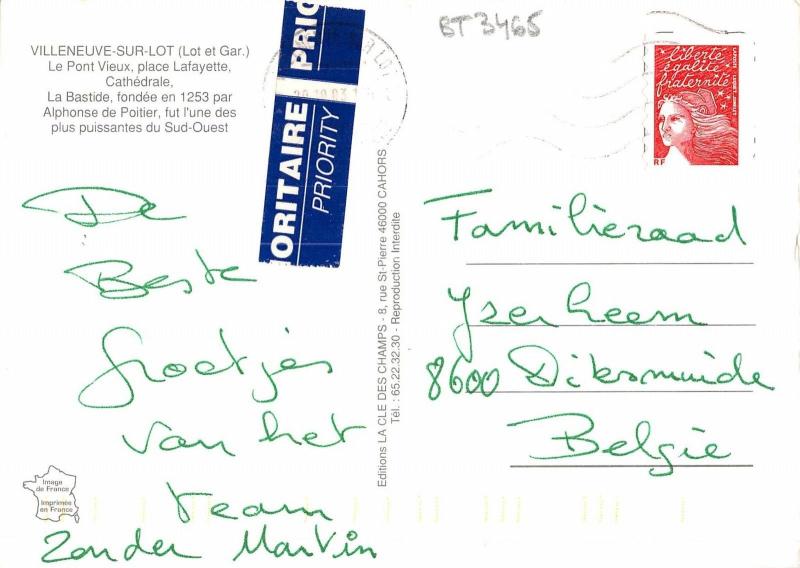 VILLENEUVE-SUR-LOT (Lot et Gar.)
Le Pont Vieux, place Lafayette,
Cathédrale,
La Bastide, fondée en 1253 par
Alphonse de Poitier, fut l'une des
plus puissantes du Sud-Ouest
ORITAIRE PRIO
PRIORITY
BT3465
liberté
égalité
fraternité
RF
De
Beste
Groetjes
van het
team
Zonder Martin
Image
de France
Imprimée
en France
Editions LA CLE DES CHAMPS - 8, rue St-Pierre 46000 CAHORS
Tél. : 65.22.32.30 - Reproduction Interdite
Familieraad
Yserheem
8600 Diksmuide
België